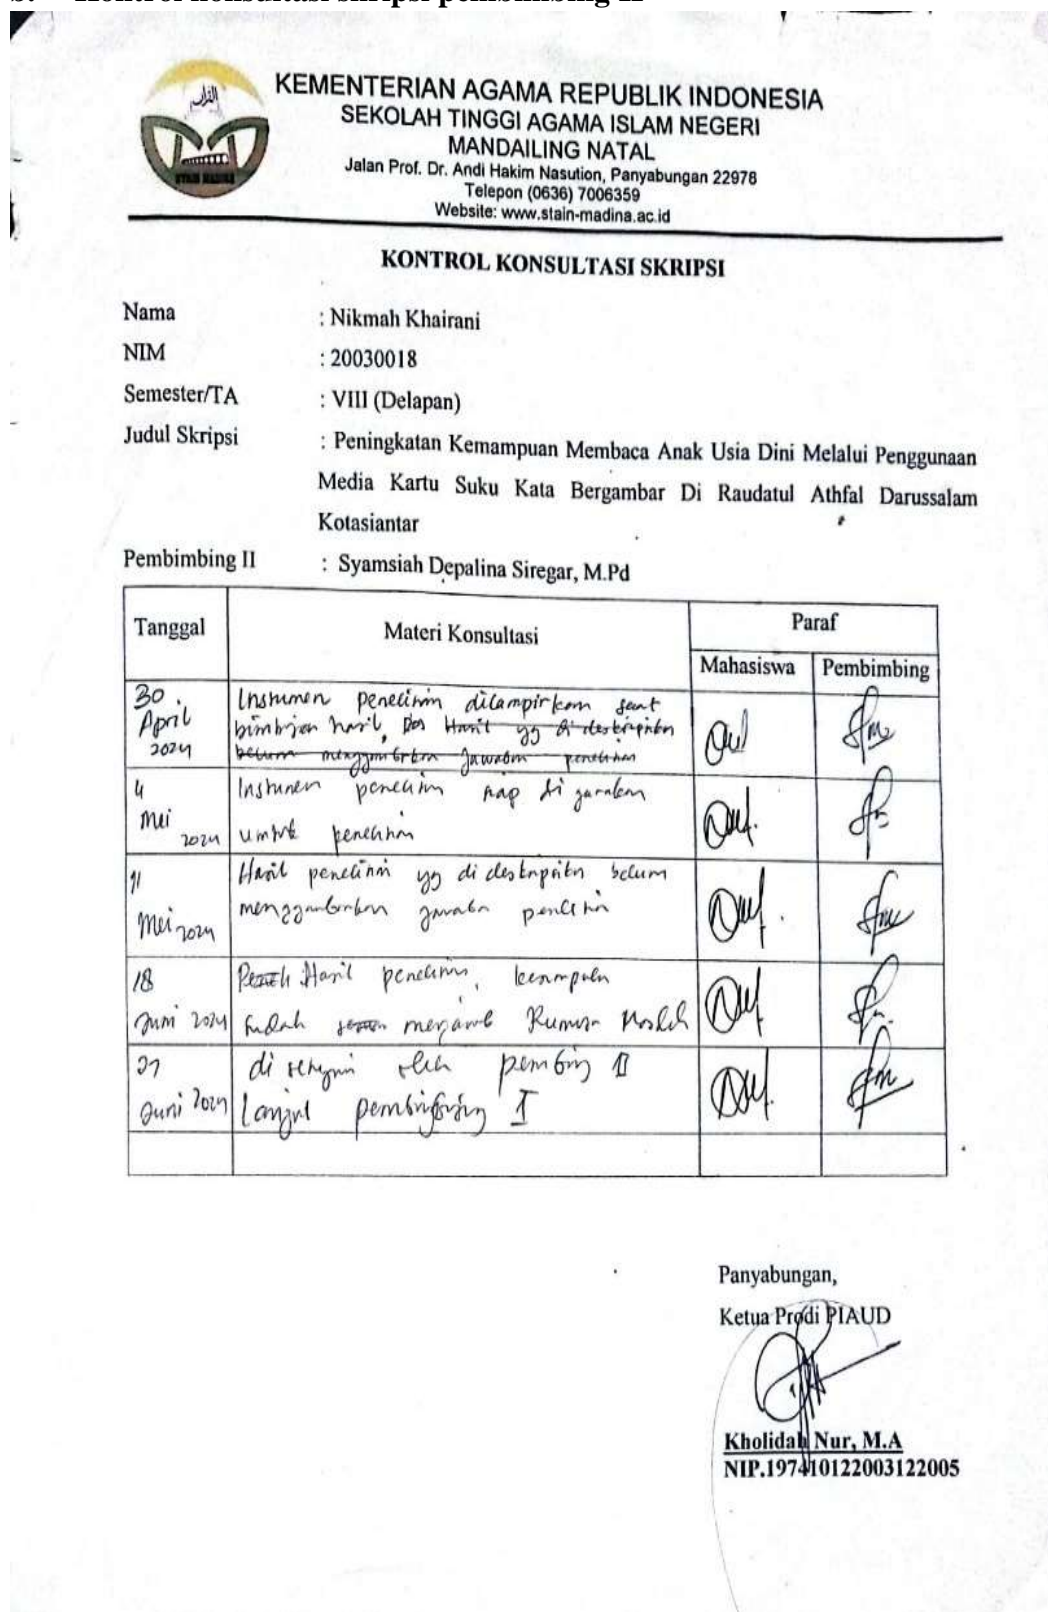 Kontrol konsultasi skripsi pembimbing II
KEMENTERIAN AGAMA REPUBLIK INDONESIA
SEKOLAH TINGGI AGAMA ISLAM NEGERI
MANDAILING NATAL
Jalan Prof. Dr. Andi Hakim Nasution, Panyabungan 22978
Telepon (0636) 7006359
Website: www.stain-madina.ac.id
STAIN MADINA
KONTROL KONSULTASI SKRIPSI
Nama : Nikmah Khairani
NIM : 20030018
Semester/TA : VIII (Delapan)
Judul Skripsi : Peningkatan Kemampuan Membaca Anak Usia Dini Melalui Penggunaan
Media Kartu Suku Kata Bergambar Di Raudatul Athfal Darussalam
Kotasiantar
Pembimbing II : Syamsiah Depalina Siregar, M.Pd
Tanggal Materi Konsultasi Paraf
Mahasiswa Pembimbing
30 April 2024 Instrumen penelitian dilampirkan saat
bimbingan hasil, Hasil yg di deskripsikan
belum menggambarkan jawaban penelitian
4 Mei 2024 Instrumen penelitian siap di gunakan
untuk penelitian
11 Mei 2024 Hasil penelitian yg di deskripsikan belum
menggambarkan jawaban penelitian
18 Juni 2024 Hasil penelitian, kesimpulan
sudah menjawab Rumusan Maslah
Juni 2024 di setujui oleh pembing II
lanjut pembimbing I
Panyabungan,
Ketua Prodi PIAUD
Kholidah Nur, M.A
NIP.197410122003122005